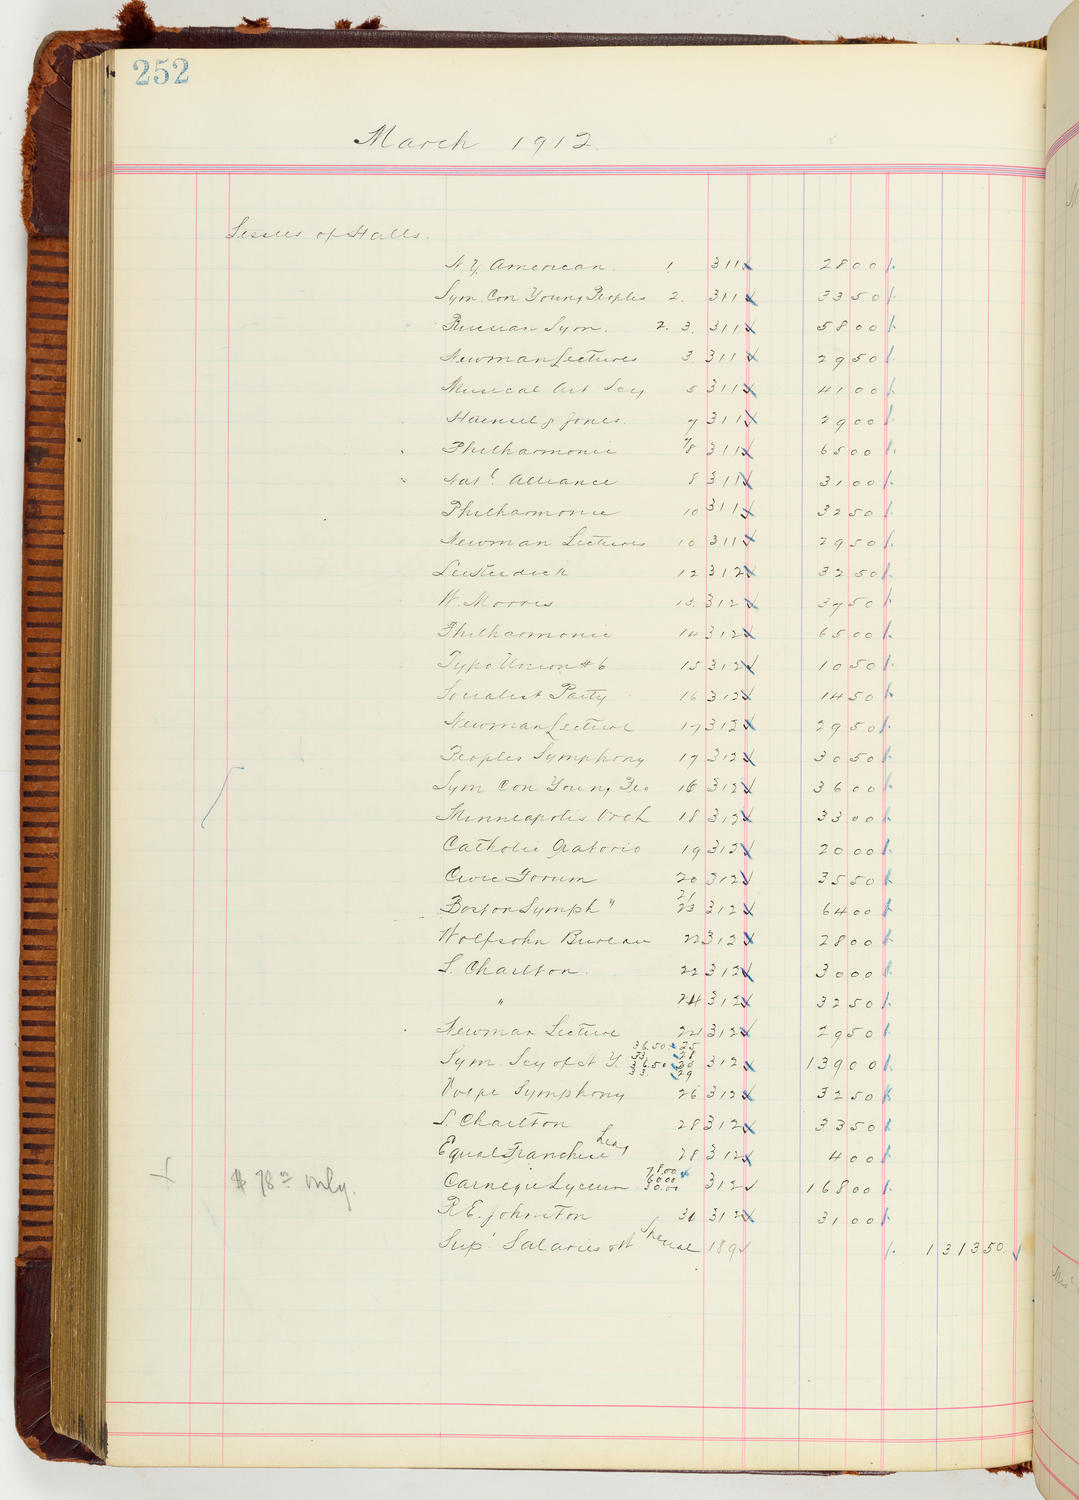 252
March 1912.
Lessees of Halls.
N.Y. American 1. 311 2800
Sym. Con Young Peoples 2. 311 3350
Russian Sym. 2. 3. 311 5800
Newman Lectures 3 311 2950
Musical Art Socy 5 311 4100
Haensel & Jones. 7 311 2900
Philharmonic 7/8 311 6500
Natl. Alliance 8 311 3100
Philharmonic 10 311 3250
Newman Lectures 10 311 2950
12 312 3250
W. Morris 13. 312 3750
Philharmonic 14 312 6500
Typo Union #6 15 312 1050
Socialist Party 16 312 1450
Newman Lecture 17 312 2950
Peoples Symphony 17 312 3050
Sym Con Young Peo 16 312 3600
Minneapolis Orch 18 312 3300
Catholic Oratorio 19 312 2000
Civic Forum 20 312 3550
Boston Symph" 21 23 312 6400
Wolfsohn Bureau 22 312 2800
L. Charlton. 22 312 3000
" 24 312 3250
Newman Lecture 24 312 2950
Sym. Socy of N.Y. 36.50 25 28 29 312 13900
Volpe Symphony 26 312 3250
L. Charlton 28 312 3350
Equal Franchise Leag 28 312 400
$78 00 only. Carnegie Lyceum 78.00 60.00 30.00 312 16800
R.E. Johnston 31 312 3100
Sup' Salaries a/c Special 189 131350